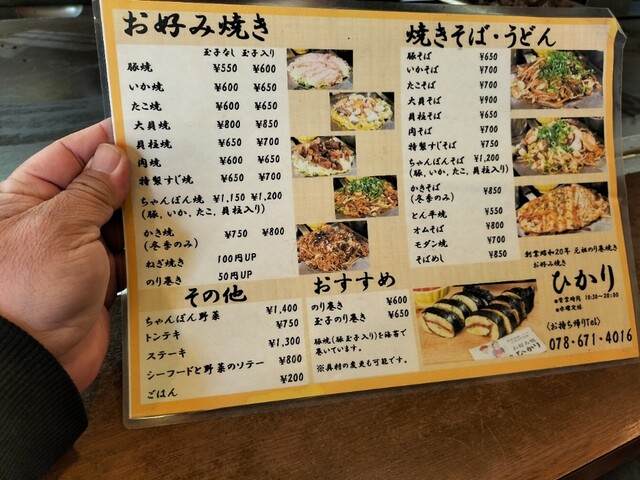 お好み焼き
玉子なし 玉子入り
豚焼 ¥550 ¥600
いか焼 ¥600 ¥650
たこ焼 ¥600 ¥650
大貝焼 ¥800 ¥850
貝柱焼 ¥650 ¥700
肉焼 ¥600 ¥650
特製すじ焼 ¥650 ¥700
ちゃんぽん焼 ¥1,150 ¥1,200
(豚、いか、たこ、貝柱入り)
かき焼 ¥750 ¥800
(冬季のみ)
ねぎ焼き 100円UP
のり巻き 50円UP
焼きそば・うどん
豚そば ¥650
いかそば ¥700
たこそば ¥700
大貝そば ¥900
貝柱そば ¥750
肉そば ¥700
特製すじそば ¥750
ちゃんぽんそば ¥1,200
(豚、いか、たこ、貝柱入り)
かきそば ¥850
(冬季のみ)
とん平焼 ¥550
オムそば ¥800
モダン焼 ¥700
そばめし ¥850
その他
ちゃんぽん野菜 ¥1,400
トンテキ ¥750
ステーキ ¥1,300
シーフードと野菜のソテー ¥800
ごはん ¥200
おすすめ
のり巻き ¥600
玉子のり巻き ¥650
豚焼(豚玉子入り)を海苔で
巻いています。
※具材の変更も可能です。
創業昭和20年 元祖のり巻き
お好み焼き
ひかり
●営業時間 10:30~20:00
●水曜定休
(お持ち帰りTel)
078-671-4016